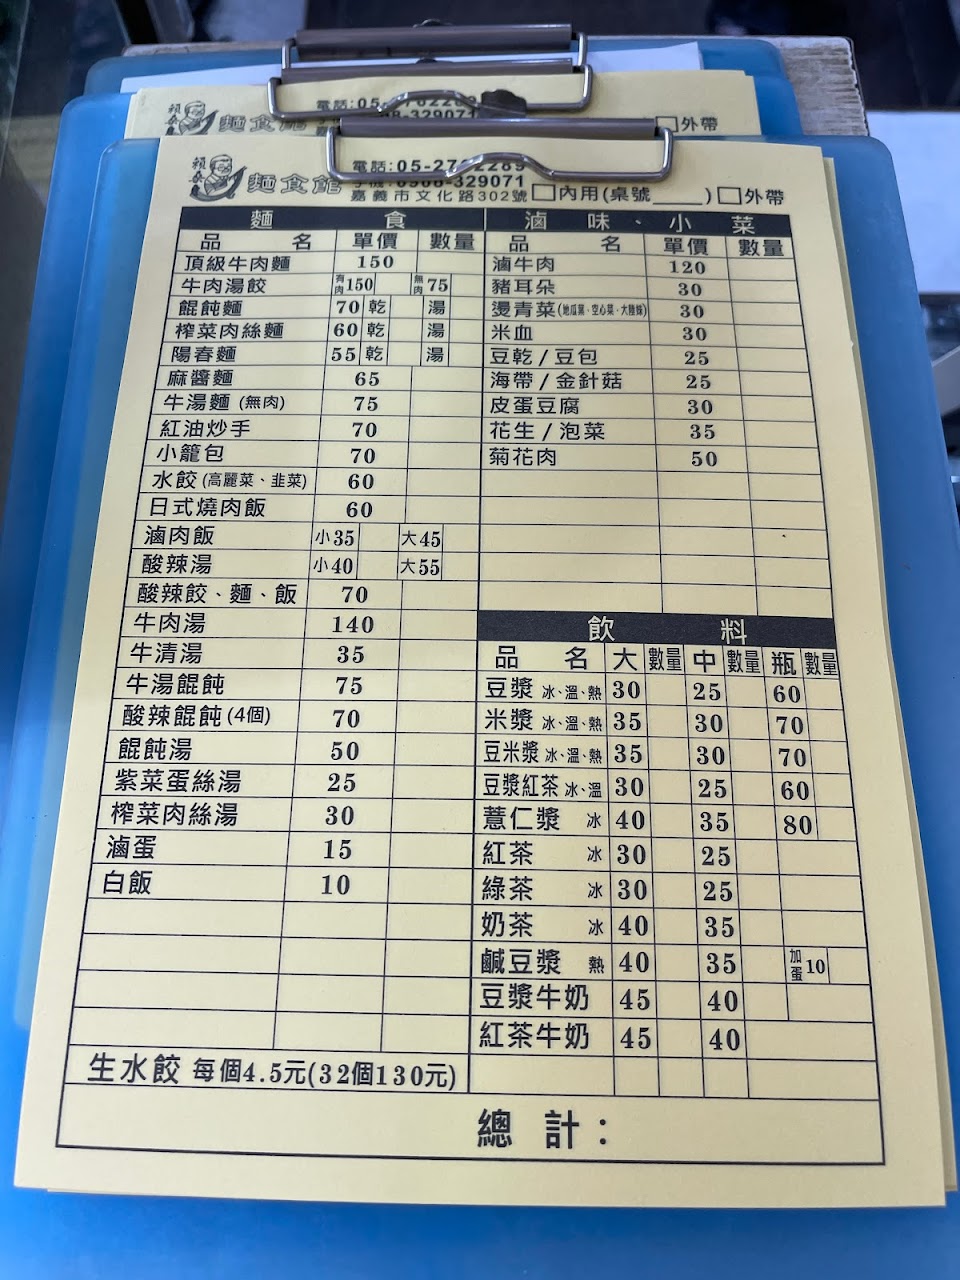 麵食館
電話:05-2762289
08-329071
外帶
賴桑
麵食館
電話:05-27 2289
手機:0908-329071
嘉義市文化路302號
內用(桌號____) 外帶
麵食
品名 單價 數量
頂級牛肉麵 150
牛肉湯餃 有肉150 無肉75
餛飩麵 70 乾 湯
榨菜肉絲麵 60 乾 湯
陽春麵 55 乾 湯
麻醬麵 65
牛湯麵(無肉) 75
紅油炒手 70
小籠包 70
水餃(高麗菜、韭菜) 60
日式燒肉飯 60
滷肉飯 小35 大45
酸辣湯 小40 大55
酸辣餃、麵、飯 70
牛肉湯 140
牛清湯 35
牛湯餛飩 75
酸辣餛飩(4個) 70
餛飩湯 50
紫菜蛋絲湯 25
榨菜肉絲湯 30
滷蛋 15
白飯 10
生水餃 每個4.5元(32個130元)
滷味、小菜
品名 單價 數量
滷牛肉 120
豬耳朵 30
燙青菜(地瓜葉、空心菜、大陸妹) 30
米血 30
豆乾/豆包 25
海帶/金針菇 25
皮蛋豆腐 30
花生/泡菜 35
菊花肉 50
飲料
品名 大 數量 中 數量 瓶 數量
豆漿 冰、溫、熱 30 25 60
米漿 冰、溫、熱 35 30 70
豆米漿 冰、溫、熱 35 30 70
豆漿紅茶 冰、溫 30 25 60
薏仁漿 冰 40 35 80
紅茶 冰 30 25
綠茶 冰 30 25
奶茶 冰 40 35
鹹豆漿 熱 40 35 加蛋10
豆漿牛奶 45 40
紅茶牛奶 45 40
總計：